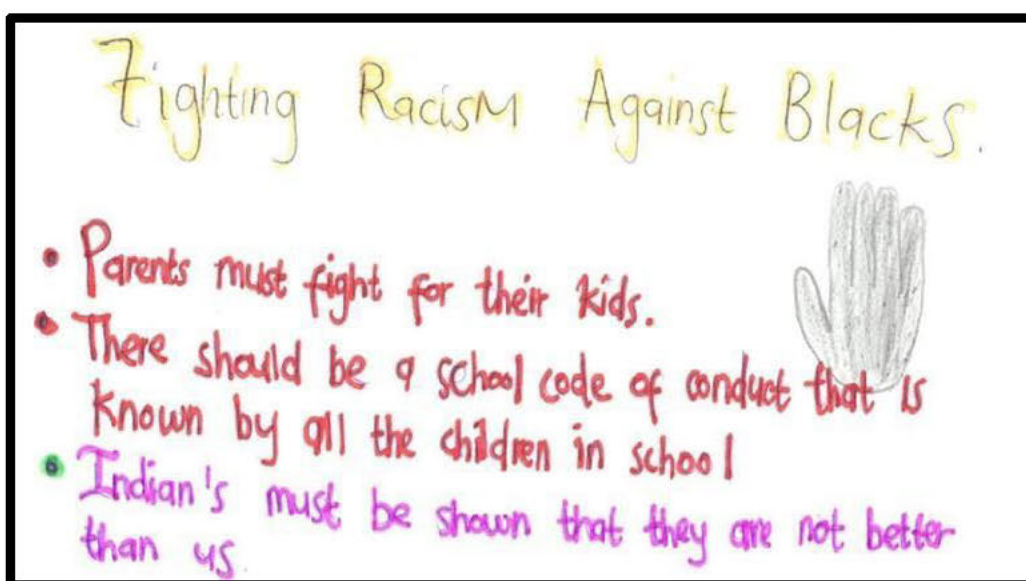 Fighting Racism Against Blacks.
• Parents must fight for their kids.
• There should be a school code of conduct that is
known by all the children in school
• Indian's must be shown that they are not better
than us.